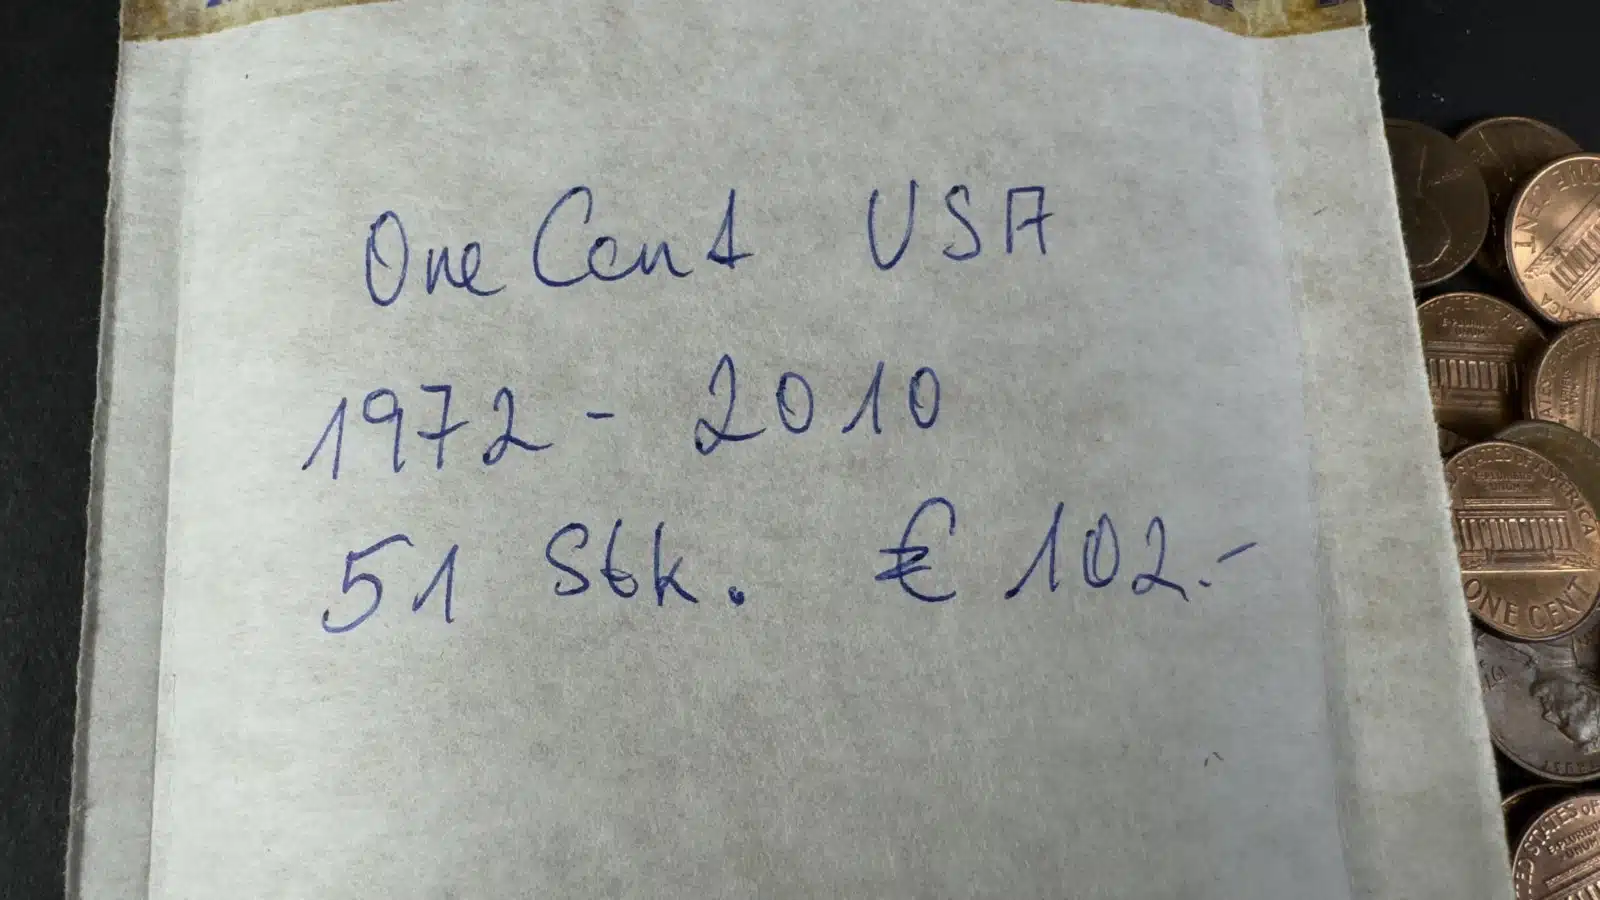 One Cent USA
1972 - 2010
51 Stk. € 102.-
ONE CENT
STATES OF AMERICA
E·PLURIBUS
UNUM
ONE CENT
STATES OF
E·PLURIBUS
UNUM